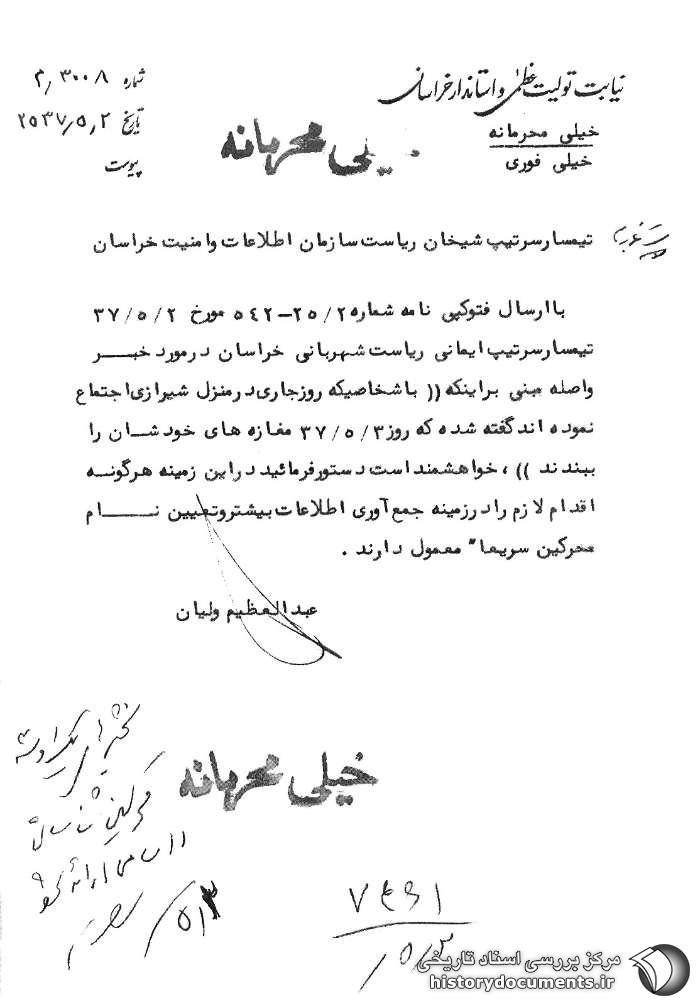 نیابت تولیت عظمی و استاندار خراسان
شماره ۳۰۰۸/م
تاریخ ۲۵۳۷/۵/۲
پیوست
خیلی محرمانه
خیلی فوری
خیلی محرمانه
تیمسار سرتیپ شیخان ریاست سازمان اطلاعات و امنیت خراسان
با ارسال فتوکپی نامه شماره ۲۵/۲–۵۴۲ مورخ ۳۷/۵/۲
تیمسار سرتیپ ایمانی ریاست شهربانی خراسان در مورد خبر
واصله مبنی بر اینکه (( با شخاصیکه روز جاری در منزل شیرازی اجتماع
نموده اند گفته شده که روز ۳۷/۵/۳ مغازه های خودشان را
ببندند )) ، خواهشمند است دستور فرمائید در این زمینه هرگونه
اقدام لازم را در زمینه جمع آوری اطلاعات بیشتر و تعیین نام
محرکین سریعا" معمول دارند .
عبدالعظیم ولیان
خیلی محرمانه
۵/۳
۵/۳
مرکز بررسی اسناد تاریخی
historydocuments.ir